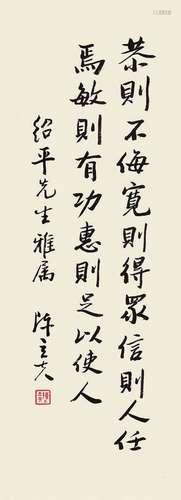 恭則不侮寬則得眾信則人任
焉敏則有功惠則足以使人
紹平先生雅属 陳立夫